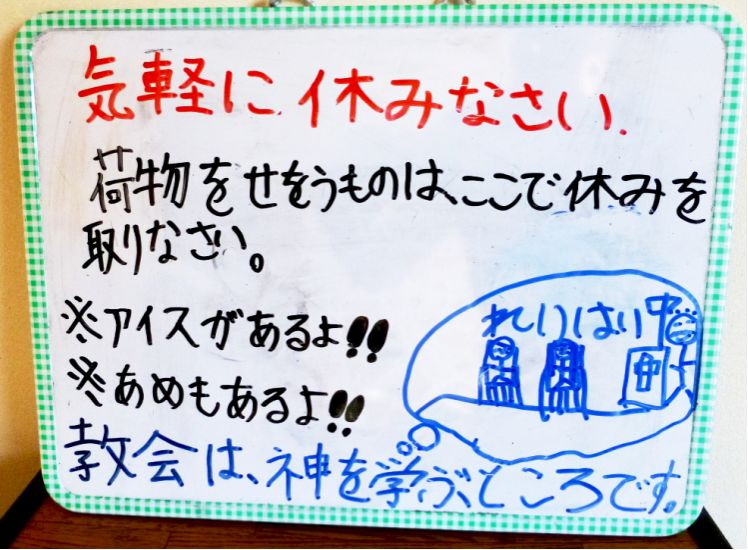 気軽に休みなさい.
荷物をせをうものは、ここで休みを
取りなさい。
※アイスがあるよ!!
※あめもあるよ!!
れいはい中
教会は、神を学ぶ、ところです。